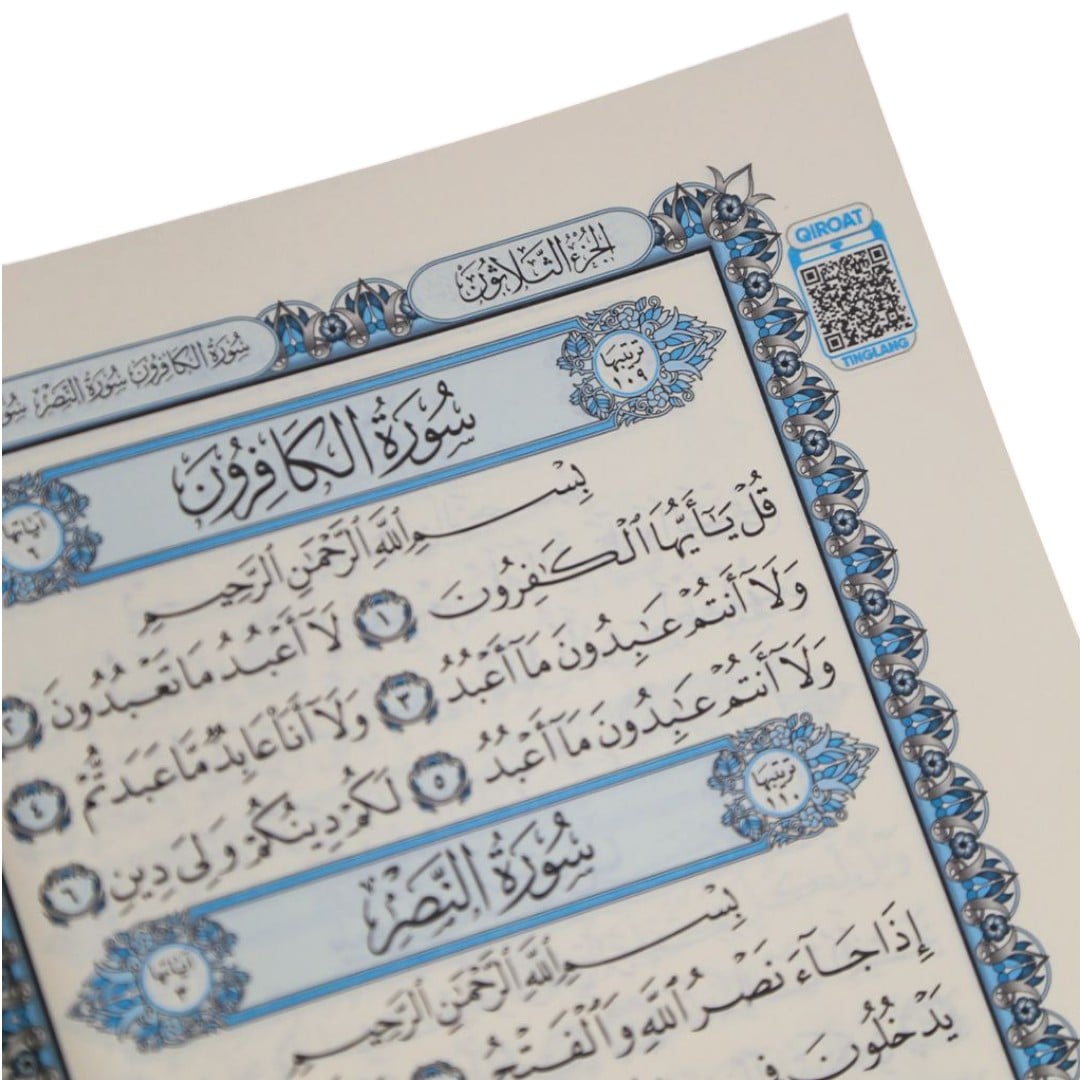 الجُزْءُ الثَّلَاثُونَ
سُورَةُ الكَافِرُونَ سُورَةُ النَّصْرِ
QIROAT
TINGLANG
تَرتِيبُهَا ١٠٩
سُورَةُ الكَافِرُونَ
آيَاتُهَا ٦
بِسْمِ ٱللَّهِ ٱلرَّحْمَٰنِ ٱلرَّحِيمِ
قُلْ يَـٰٓأَيُّهَا ٱلْكَـٰفِرُونَ ١ لَآ أَعْبُدُ مَا تَعْبُدُونَ ٢
وَلَآ أَنتُمْ عَـٰبِدُونَ مَآ أَعْبُدُ ٣ وَلَآ أَنَا۠ عَابِدٌ مَّا عَبَدتُّمْ ٤
وَلَآ أَنتُمْ عَـٰبِدُونَ مَآ أَعْبُدُ ٥ لَكُمْ دِينُكُمْ وَلِىَ دِينِ ٦
تَرتِيبُهَا ١١٠
سُورَةُ النَّصْرِ
آيَاتُهَا ٣
بِسْمِ ٱللَّهِ ٱلرَّحْمَٰنِ ٱلرَّحِيمِ
إِذَا جَآءَ نَصْرُ ٱللَّهِ وَٱلْفَتْحُ
يَدْخُلُونَ فِى